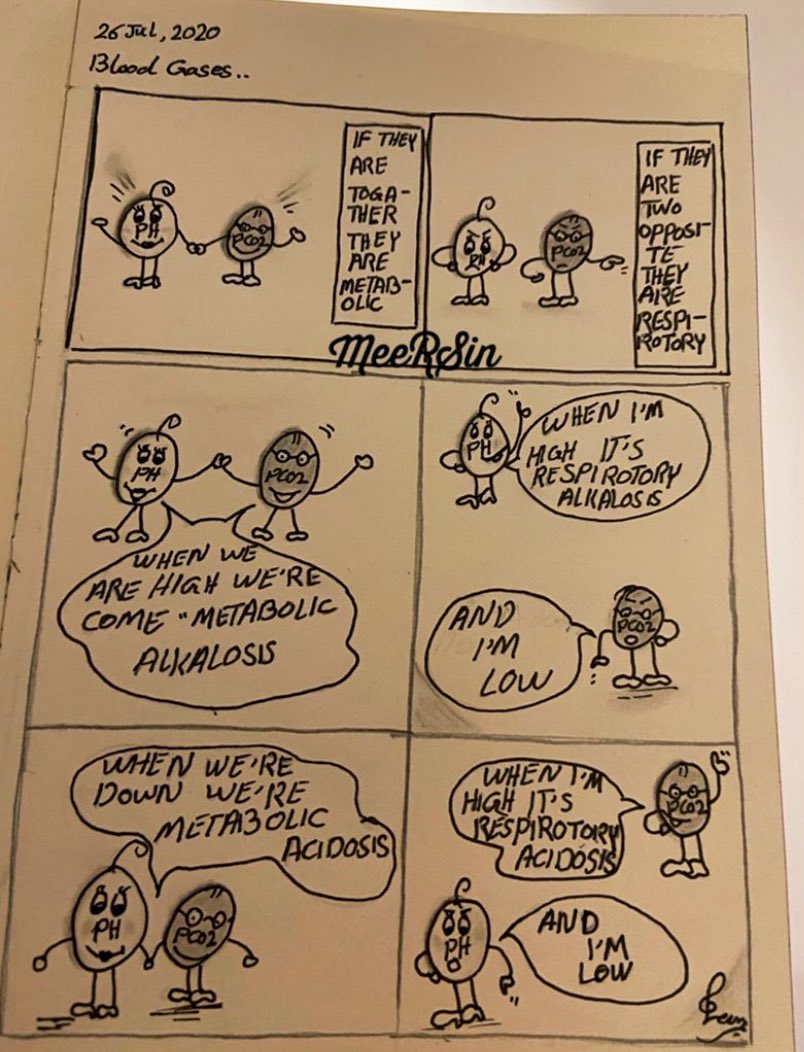 26 Jul, 2020
Blood Gases..
PH
PCO2
IF THEY
ARE
TOGA-
THER
THEY
ARE
METAB-
OLIC
PH
PCO2
IF THEY
ARE
TWO
OPPOSI-
TE
THEY
ARE
RESPI-
ROTORY
MeeRSin
PH
PCO2
WHEN WE
ARE HIGH WE'RE
COME "METABOLIC
ALKALOSIS
PH
WHEN I'M
HIGH IT'S
RESPIROTORY
ALKALOSIS
AND
I'M
LOW
PCO2
WHEN WE'RE
DOWN WE'RE
METABOLIC
ACIDOSIS
PH
PCO2
WHEN I'M
HIGH IT'S
RESPIROTORY
ACIDOSIS
PCO2
PH
AND
I'M
LOW